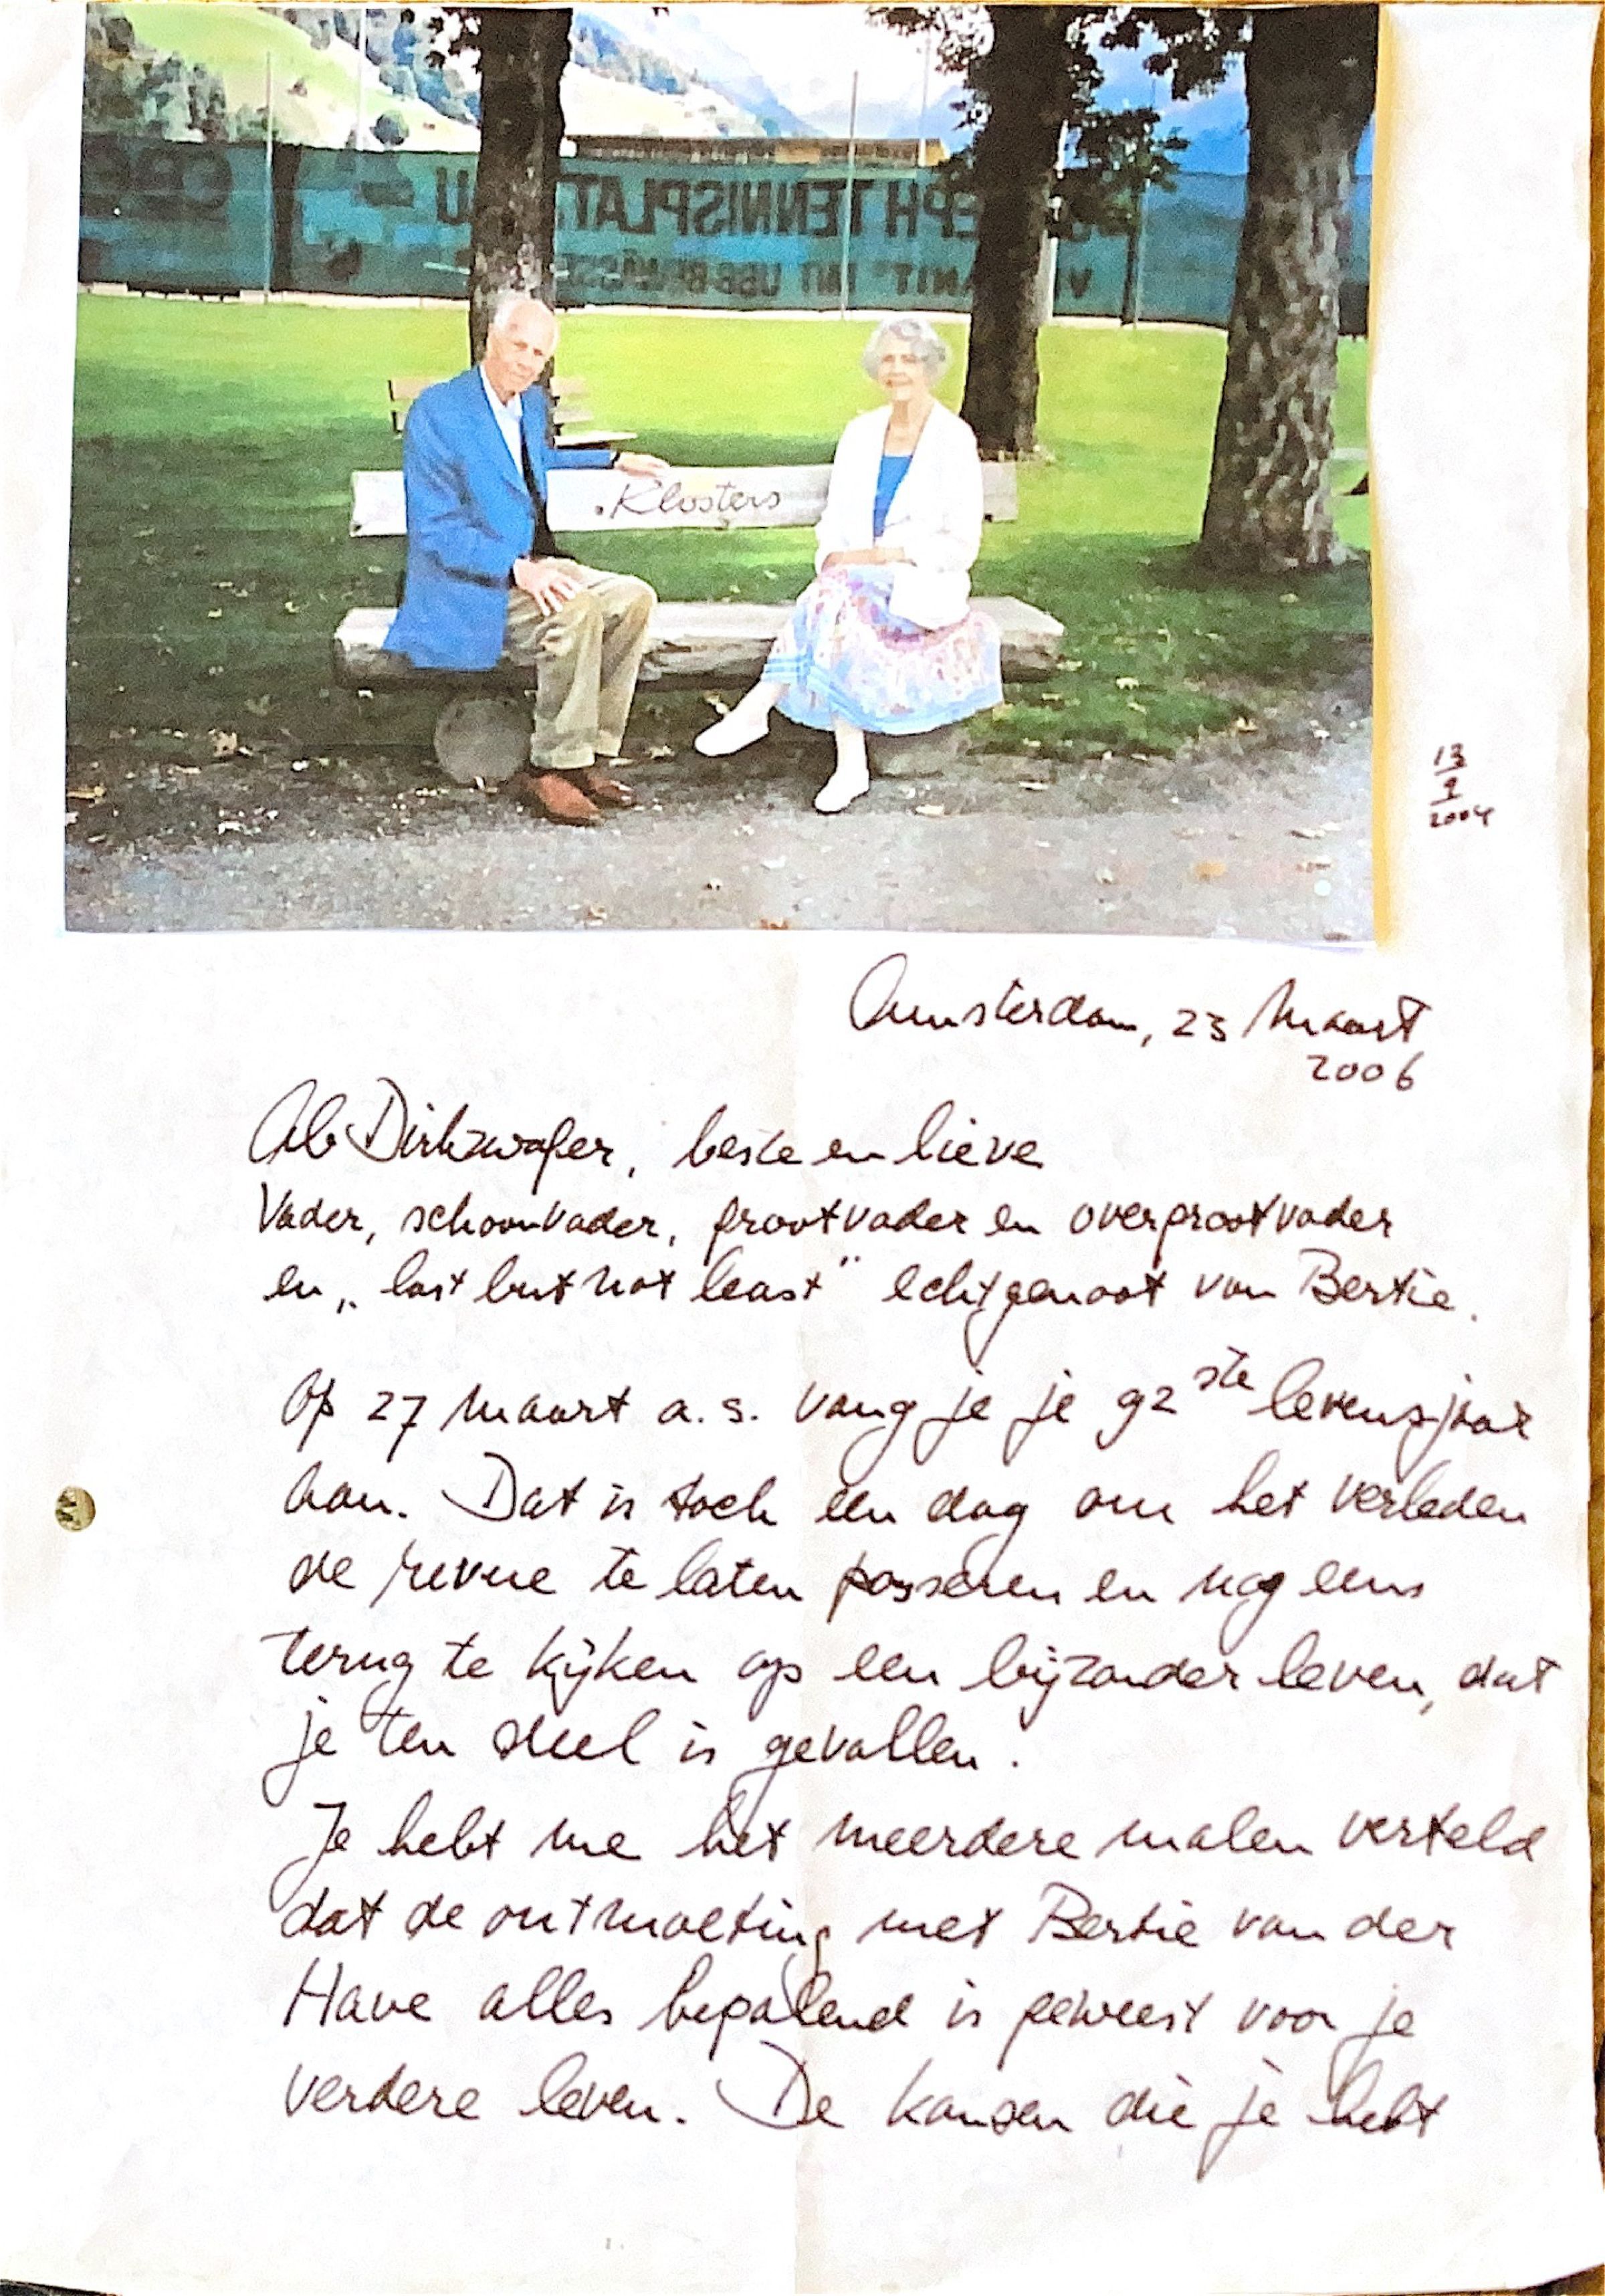 TENNISPLAT
Klosters
13
9
2004
Amsterdam, 23 Maart
2006
Ab Dirkzwager, beste en lieve
Vader, schoonvader, grootvader en overgrootvader
en „last but not least" echtgenoot van Bertie.
Op 27 Maart a.s. vang je je 92ste levensjaar
aan. Dat is toch een dag om het verleden
de revue te laten passeren en nog eens
terug te kijken op een bijzonder leven, dat
je ten deel is gevallen.
Je hebt me het meerdere malen verteld
dat de ontmoeting met Bertie van der
Have alles bepalend is geweest voor je
verdere leven. De kansen die je hebt